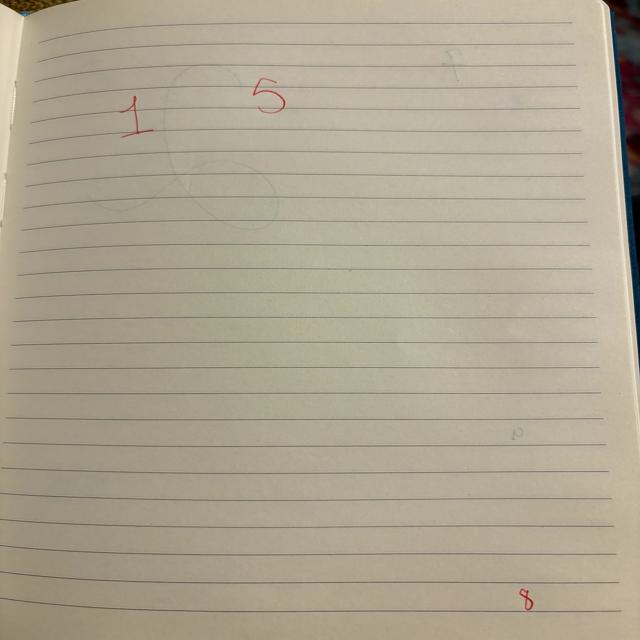 1 5
8